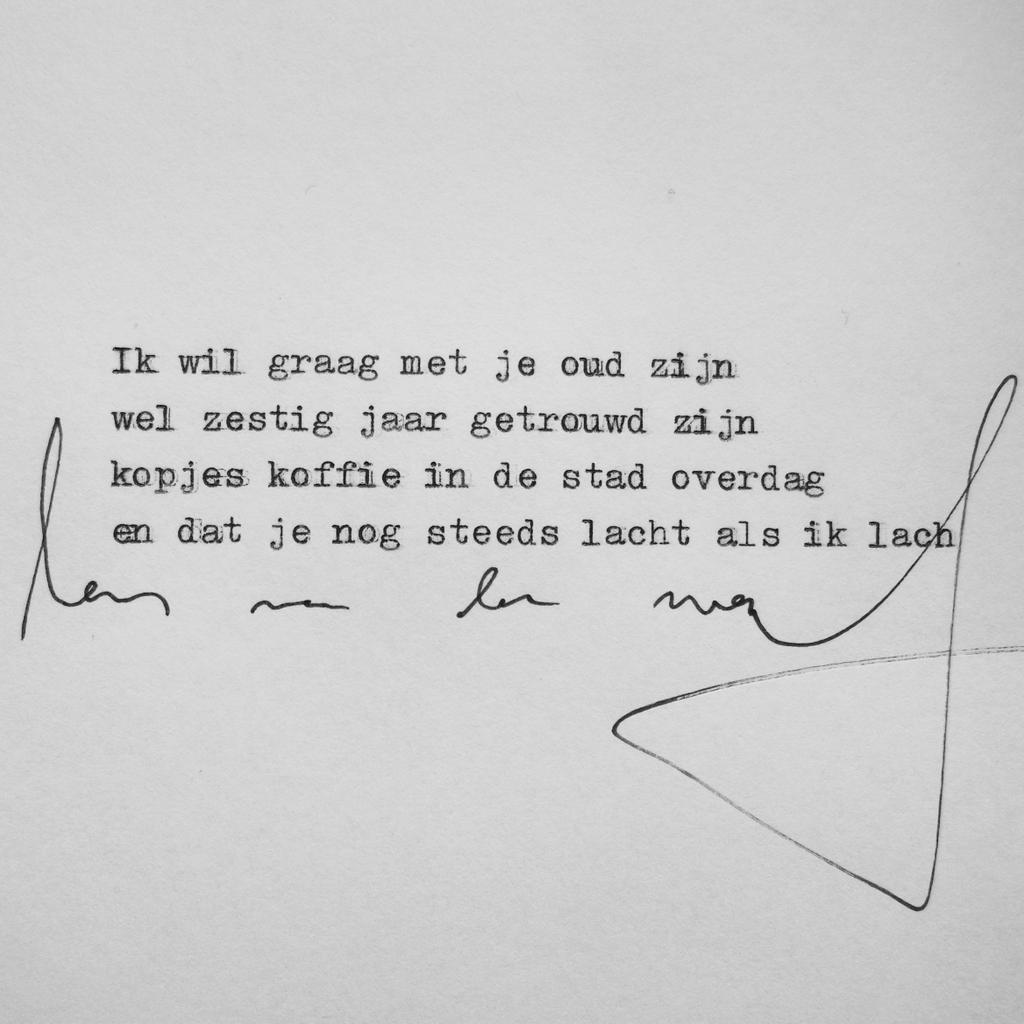 Ik wil graag met je oud zijn
wel zestig jaar getrouwd zijn
kopjes koffie in de stad overdag
en dat je nog steeds lacht als ik lach